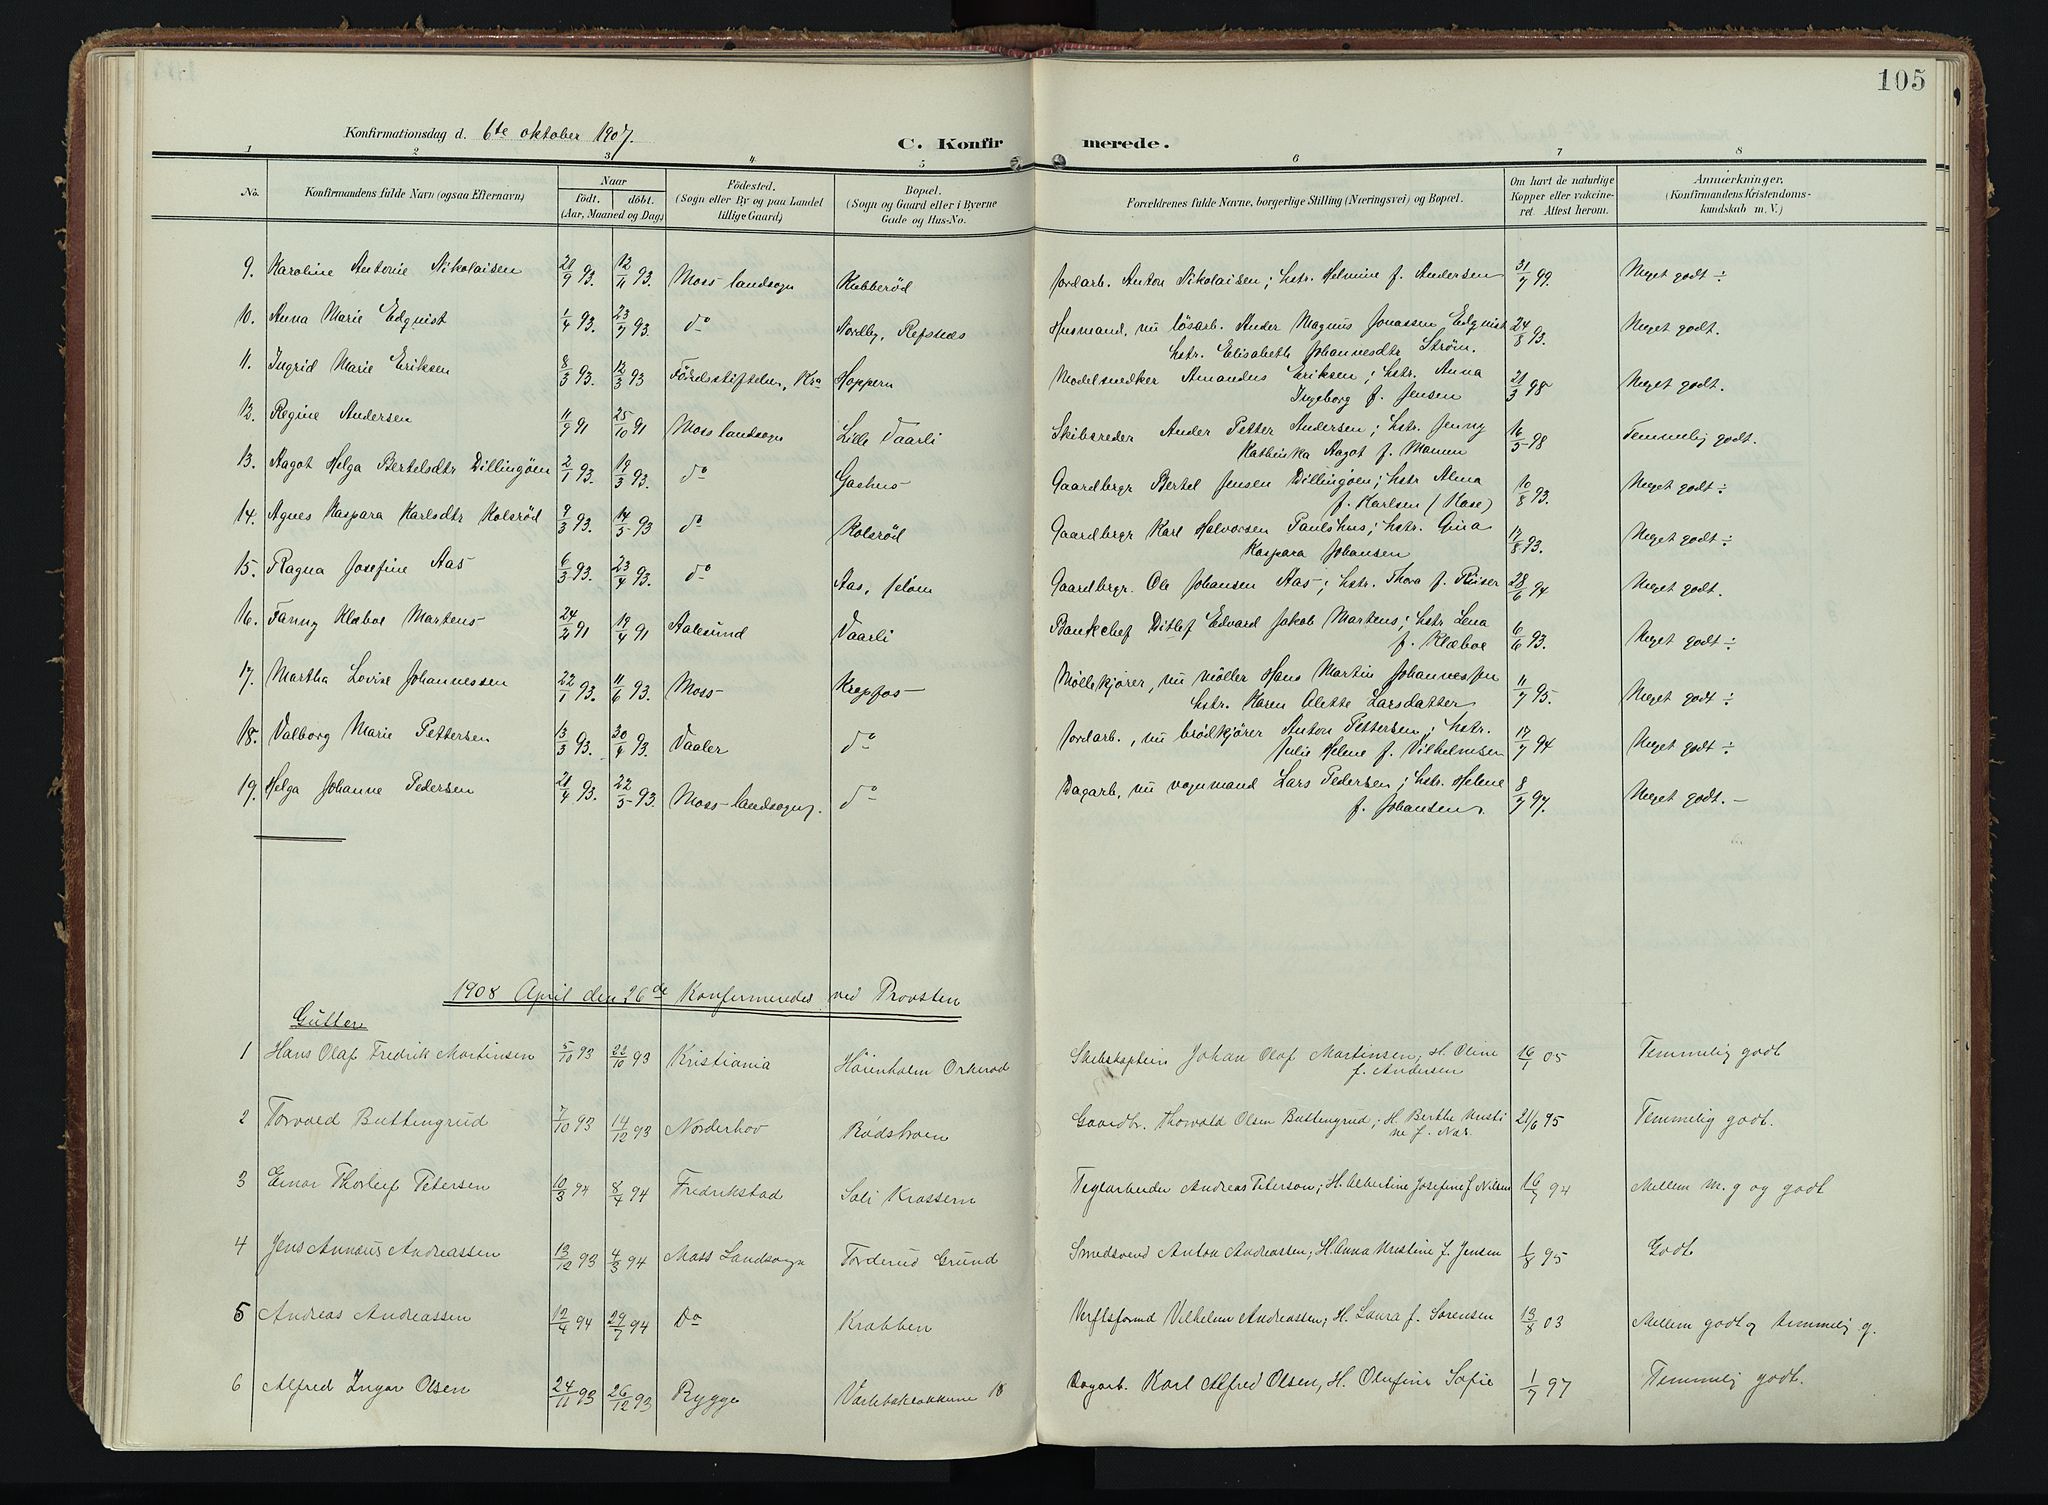 105
Konfirmationsdag d. 6te oktober 1907.
C. Konfirmerede.
1 2 3 4 5 6 7 8
No. Konfirmandens fulde Navn (ogsaa Efternavn) Naar födt. döbt. (Aar, Maaned og Dag) Födested. (Sogn eller By og paa Landet tillige Gaard) Bopæl. (Sogn og Gaard eller i Byerne Gade og Hus-No. Forældrenes fulde Navne, borgerlige Stilling (Næringsvei) og Bopæl. Om havt de naturlige Kopper eller vaccineret. Attest herom. Anmærkninger. (Konfirmandens Kristendomskundskab m. V.)
9. Karoline Antonie Nikolaisen 21/9 93. 12/11 93. Moss landsogn Kubberød Jordarb. Anton Nikolaisen; hstr. Helmine f. Andersen 31/7 99. Meget godt ÷
10. Anna Marie Edquist 1/4 93. 23/7 93. do Nordby, Refsnæs Husmand, nu løsarb. Ander Magnus Jonassen Edquist 24/8 93. Meget godt.
hstr. Elisabeth Johannesdtr Strøm.
11. Ingrid Marie Eriksen 8/3 93. 12/3 93 Födselsstiftelsen, Kra Hoppern Modelsnedker Amandus Eriksen; hstr. Anna 21/3 98 Meget godt.
Ingeborg f. Jensen
12. Regine Andersen 11/9 91 25/10 91 Moss landsogn Lille Vaarli Skibsreder Ander Petter Andersen; hstr. Jenny 16/5 98 Temmelig godt.
Kathinka Aagot f. Mamen
13. Aagot Helga Bertelsdtr Dillingøen 2/1 93. 19/3 93. do Gashus Gaardbrgr Bertel Jensen Dillingøen; hstr Alma 10/8 93. Meget godt ÷
f. Karlsen (Kase)
14. Agnes Kaspara Karlsdtr Kolsrød 9/3 93. 14/5 93 do Kolsrød Gaardbrgr Karl Halvorsen Paulshus; hstr. Gina 17/8 93. Meget godt ÷
Kaspara Johansen
15. Ragna Josefine Aas 6/3 93. 23/4 93. do Aas, Jeløen Gaardbrgr. Ole Johansen Aas; hstr. Thora f. 28/6 94 Meget godt.
16. Fanny Klæboe Martens 24/2 91 19/4 91 Aalesund Vaarli Bankchef Ditlef Edvard Jakob Martens; hstr Lena 6/6 93. Meget godt ÷
f. Klæboe
17. Martha Lovise Johannessen 22/1 93. 11/6 93. Moss Krapfos Møllekjører, nu møller Hans Martin Johannessen 11/7 95. Meget godt ÷
hstr. Karen Alette Larsdatter
18. Valborg Marie Pettersen 13/3 93. 30/4 93. Vaaler do Jordarb., nu brødkjører Anton Pettersen; hstr. 17/7 94 Meget godt ÷
Julie Helene f. Vilhelmsen
19. Helga Johanne Pedersen 21/4 93. 22/5 93. Moss landsogn. do Dagarb. nu vognmand Lars Pedersen; hstr. Helene 8/7 97. Meget godt. –
f. Johansen.
1908 April den 26de Konfirmeredes ved Provsten
Gutter
1 Hans Olaf Fredrik Martinsen 5/10 93 22/10 93 Kristiania Höienholm Orkerød Skibskaptein Johan Olaf Martinsen; H. Oline 16/1 05 Temmelig godt
f. Andersen
2 Torvald Buttengrud 7/10 93 14/12 93 Norderhov Rödstroen Gaardbr. Thorvald Olsen Buttengrud; H. Berthe Kristine 21/6 95 Temmelig godt.
f. Næs.
3 Einar Thorleif Petersen 10/3 94 8/4 94 Fredrikstad Soli Krossern Teglarbeider Andreas Peterson; H. Albertine Josefine f. Nilsen 16/7 94 Mellem m. g og godt
4 Jens Annæus Andreassen 13/12 93 4/3 94 Moss Landsogn Torderud Grund Smedsvend Anton Andreassen; H. Anna Kristine f. Jensen 1/8 95 Godt
5 Andreas Andreassen 12/4 94 29/7 94 Do Krabben Verftsformd Vilhelm Andreassen; H. Laura f. Sørensen 13/8 03 Mellem godt og temmelig g.
6 Alfred Ingar Olsen 24/11 93 26/12 93 Rygge Varlebakløkkerne 18 Dagarb. Karl Alfred Olsen, H. Olufine Sofie 1/7 97 Temmelig godt.